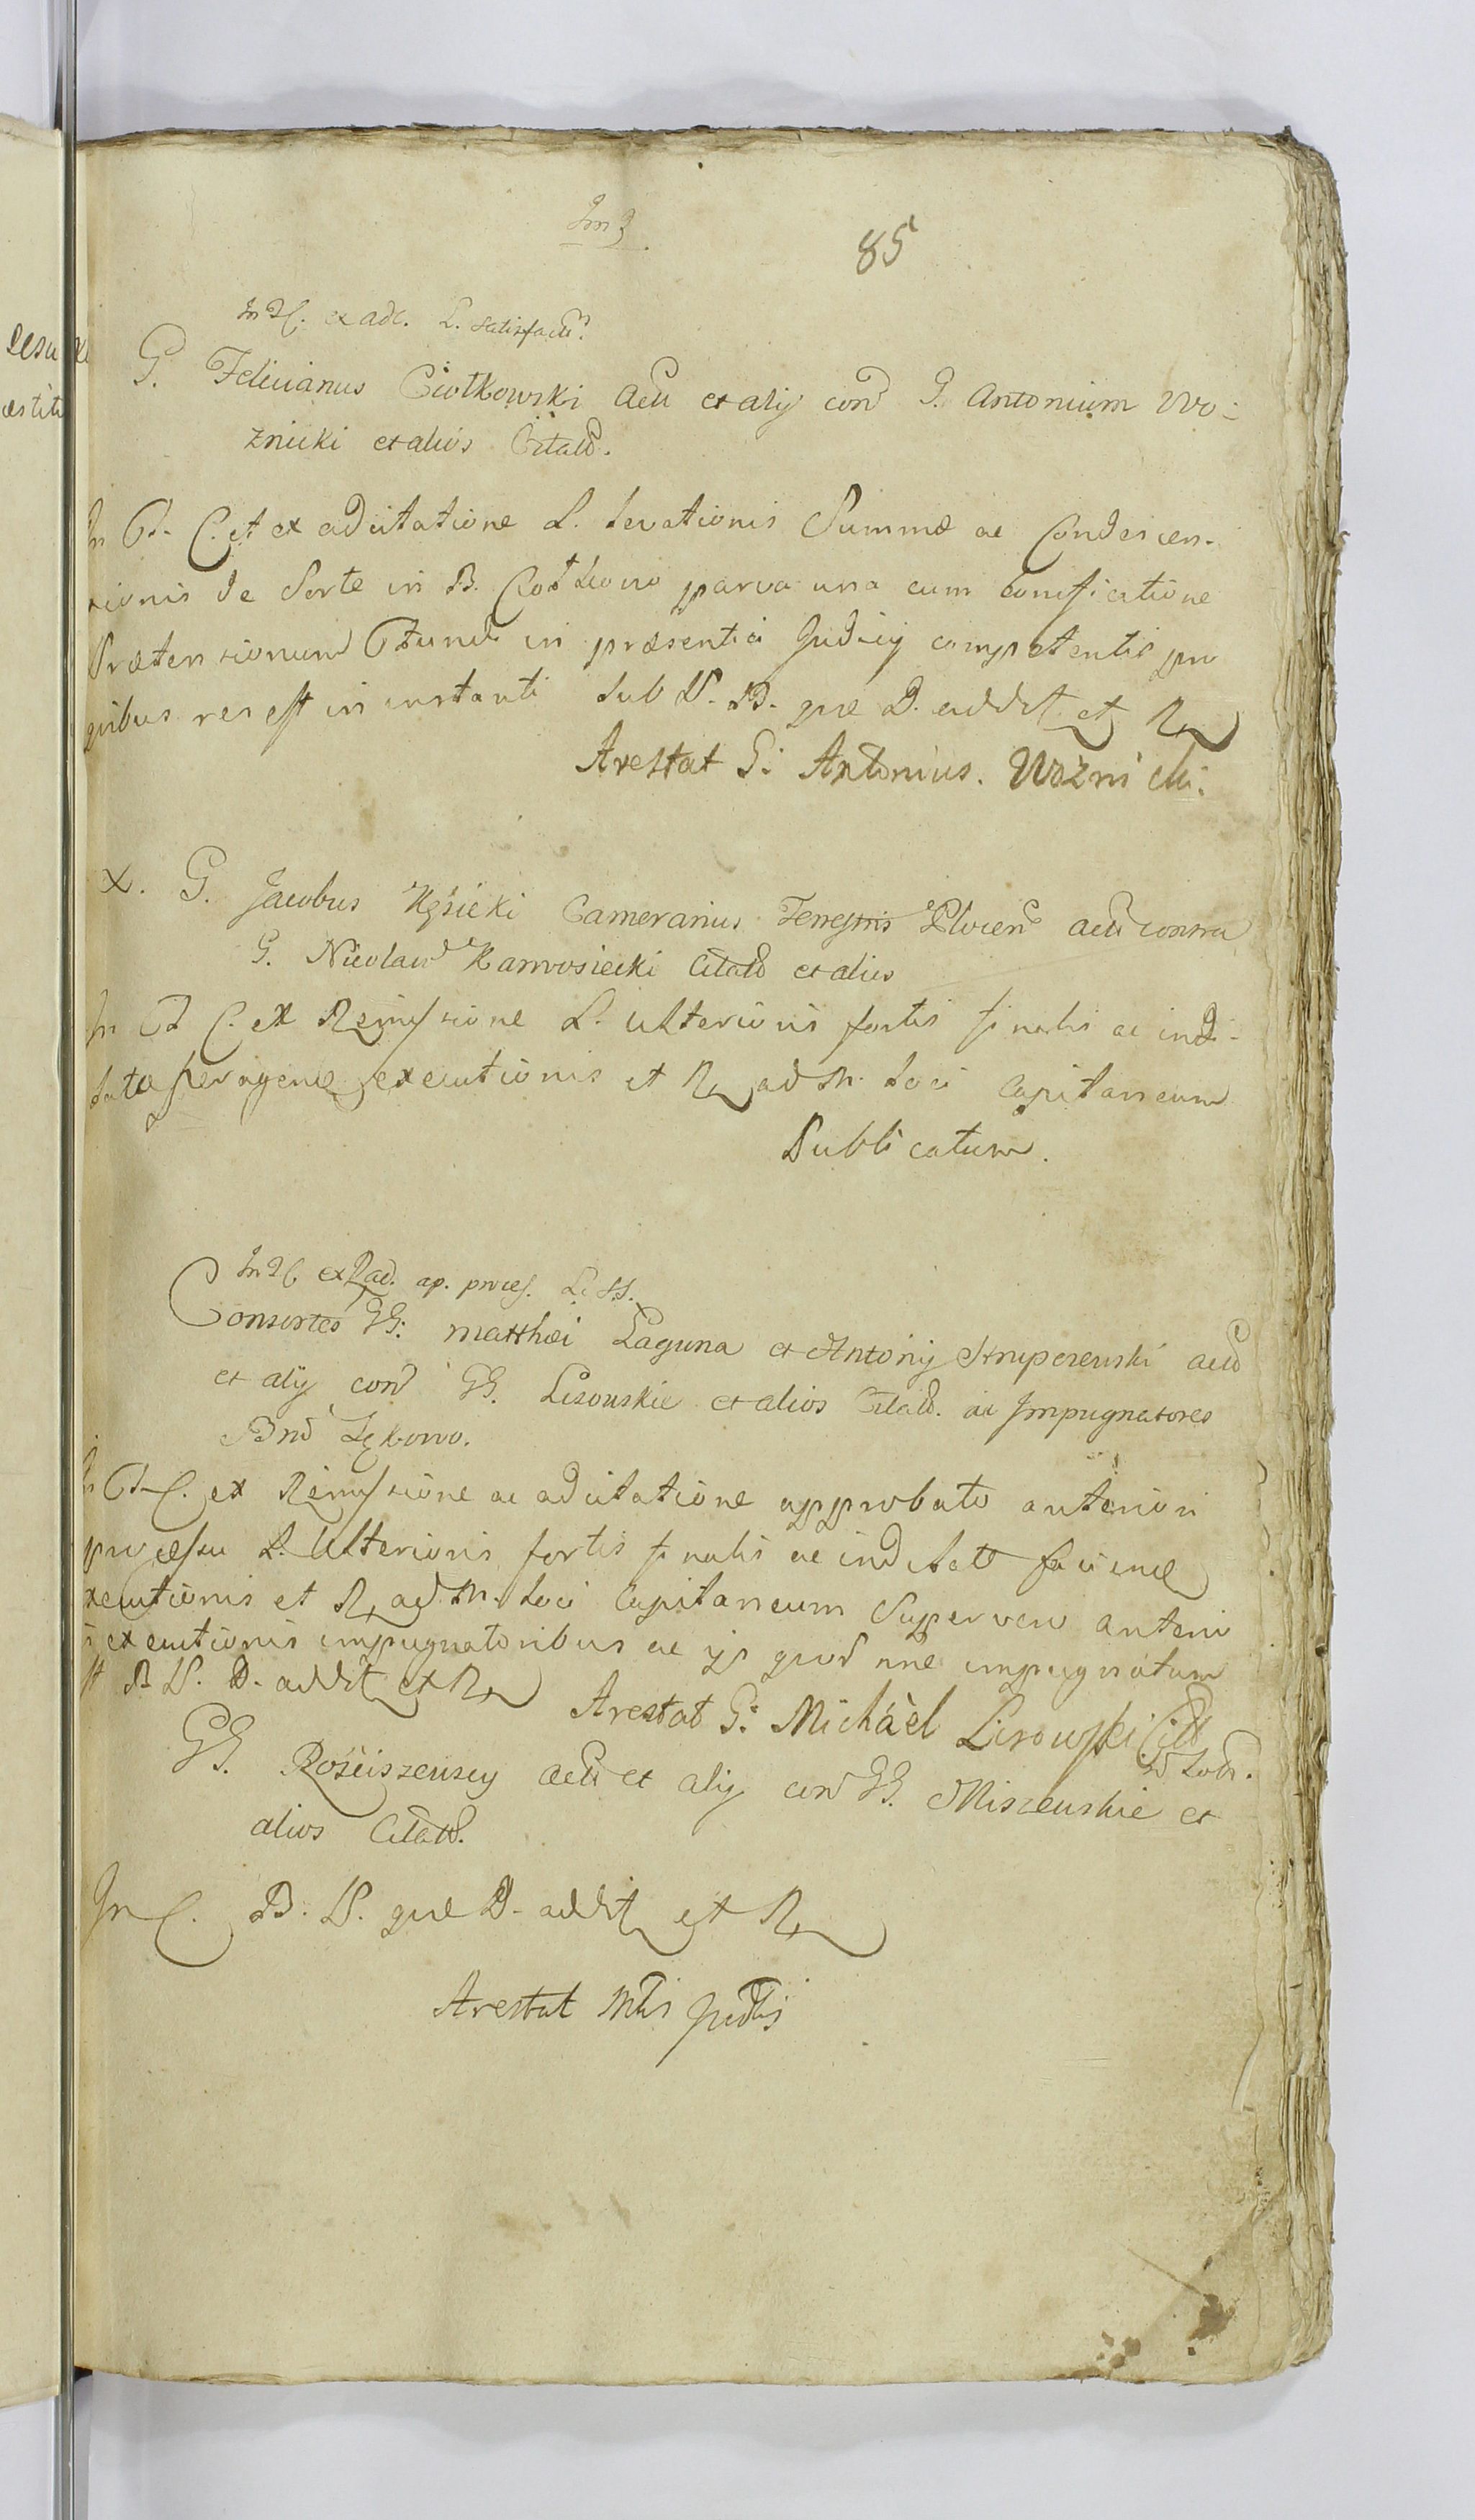 85
ex adc. L. satisfact.
G. Felicianus Ciołkowski Act. et alij con G. Antonium Wo-
znicki et alios Citatt.
C. et ex adcitatione L. levationis Summæ ac Condescen-
sionis de Sorte in B. parva una cum
Prætensionum in præsentia Judicij competentis pro
quibus res est in instanti sub P. B. que D. addit et R
Arestat G: Antonius. Wozni cki.
X. G. Jacobus Kęsicki Camerarius Terrestris Plocen Act contra
G. Nicolaum Karwosiecki Citatt et alios
In C. ex Remissione L. ulterioris fortis finalis ac ind-
late peragenæ executionis et R ad M. Loci Capitaneum
Publi catum.
ex Rad. ap. proces. L.
Consortes GG: Matthæi Laguna et Antonij Act
et alij con GG. Lisouskie et alios Citatt. ac Impugnatores
Bno Łękowo.
C. ex Remissione ac adcitatione approbato anteriori
processu L. Ulterioris fortis finalis ac indilate faciendæ
xecutionis et R ad M. Loci Capitaneum Super vero anteri
executionis impugnatoribus ac ijs quod impugnatum
B P. D. addit et R Arestat G: Michàel Lisowski Citt
GG. Rosciszewscy Act et alij con GG. Miszeuskie et
alios Citatt.
In C. B. P. que D. addit et R
Arestat